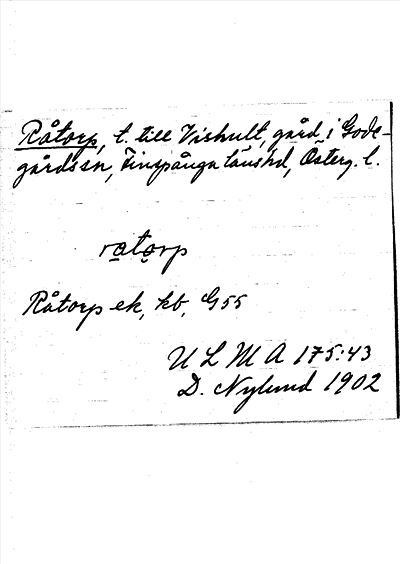 Råtorp, t. till Vishult, gård i Gode-
gårds sn, Finspånga länshd, Österg. l.
ratorp
Råtorp ek, kb, G55
ULMA 175:43
D. Nylund 1902